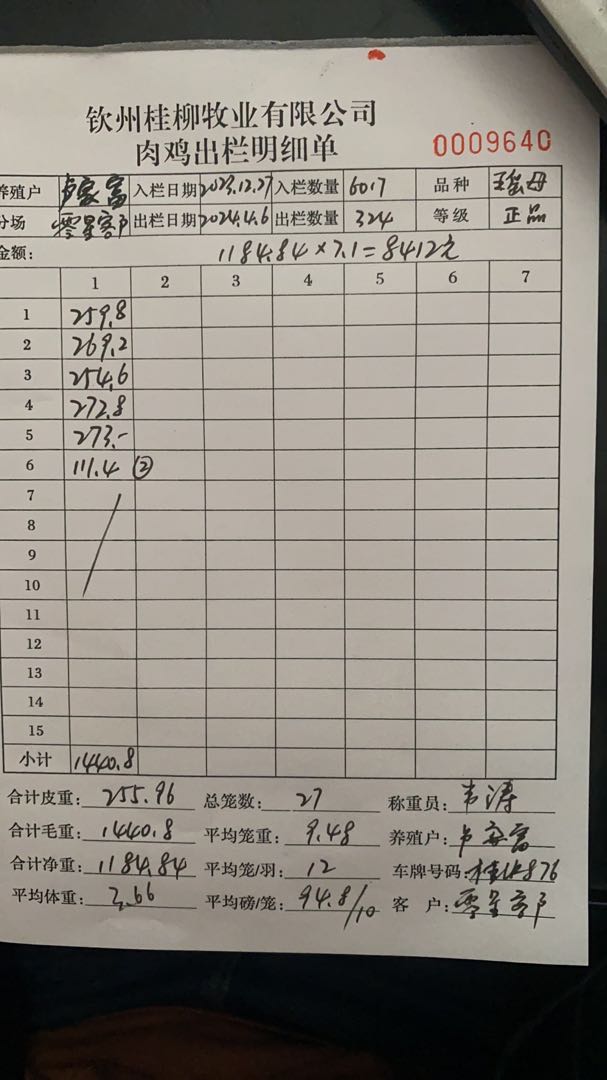 钦州桂柳牧业有限公司
肉鸡出栏明细单 0009640
养殖户 卢家富 入栏日期 2023.12.27 入栏数量 6017 品种
分场 零星客户 出栏日期 2024.4.6 出栏数量 324 等级 正品
金额: 1184.84×7.1=8412元
1 2 3 4 5 6 7
1 259.8
2 269.2
3 254.6
4 272.8
5 273.-
6 111.4 ②
7
8
9
10
11
12
13
14
15
小计 1440.8
合计皮重: 255.96 总笼数: 27 称重员: 韦涛
合计毛重: 1440.8 平均笼重: 9.48 养殖户: 卢家富
合计净重: 1184.84 平均笼/羽: 12 车牌号码:
平均体重: 3.66 平均磅/笼: 94.8/10 客 户: 零星客户